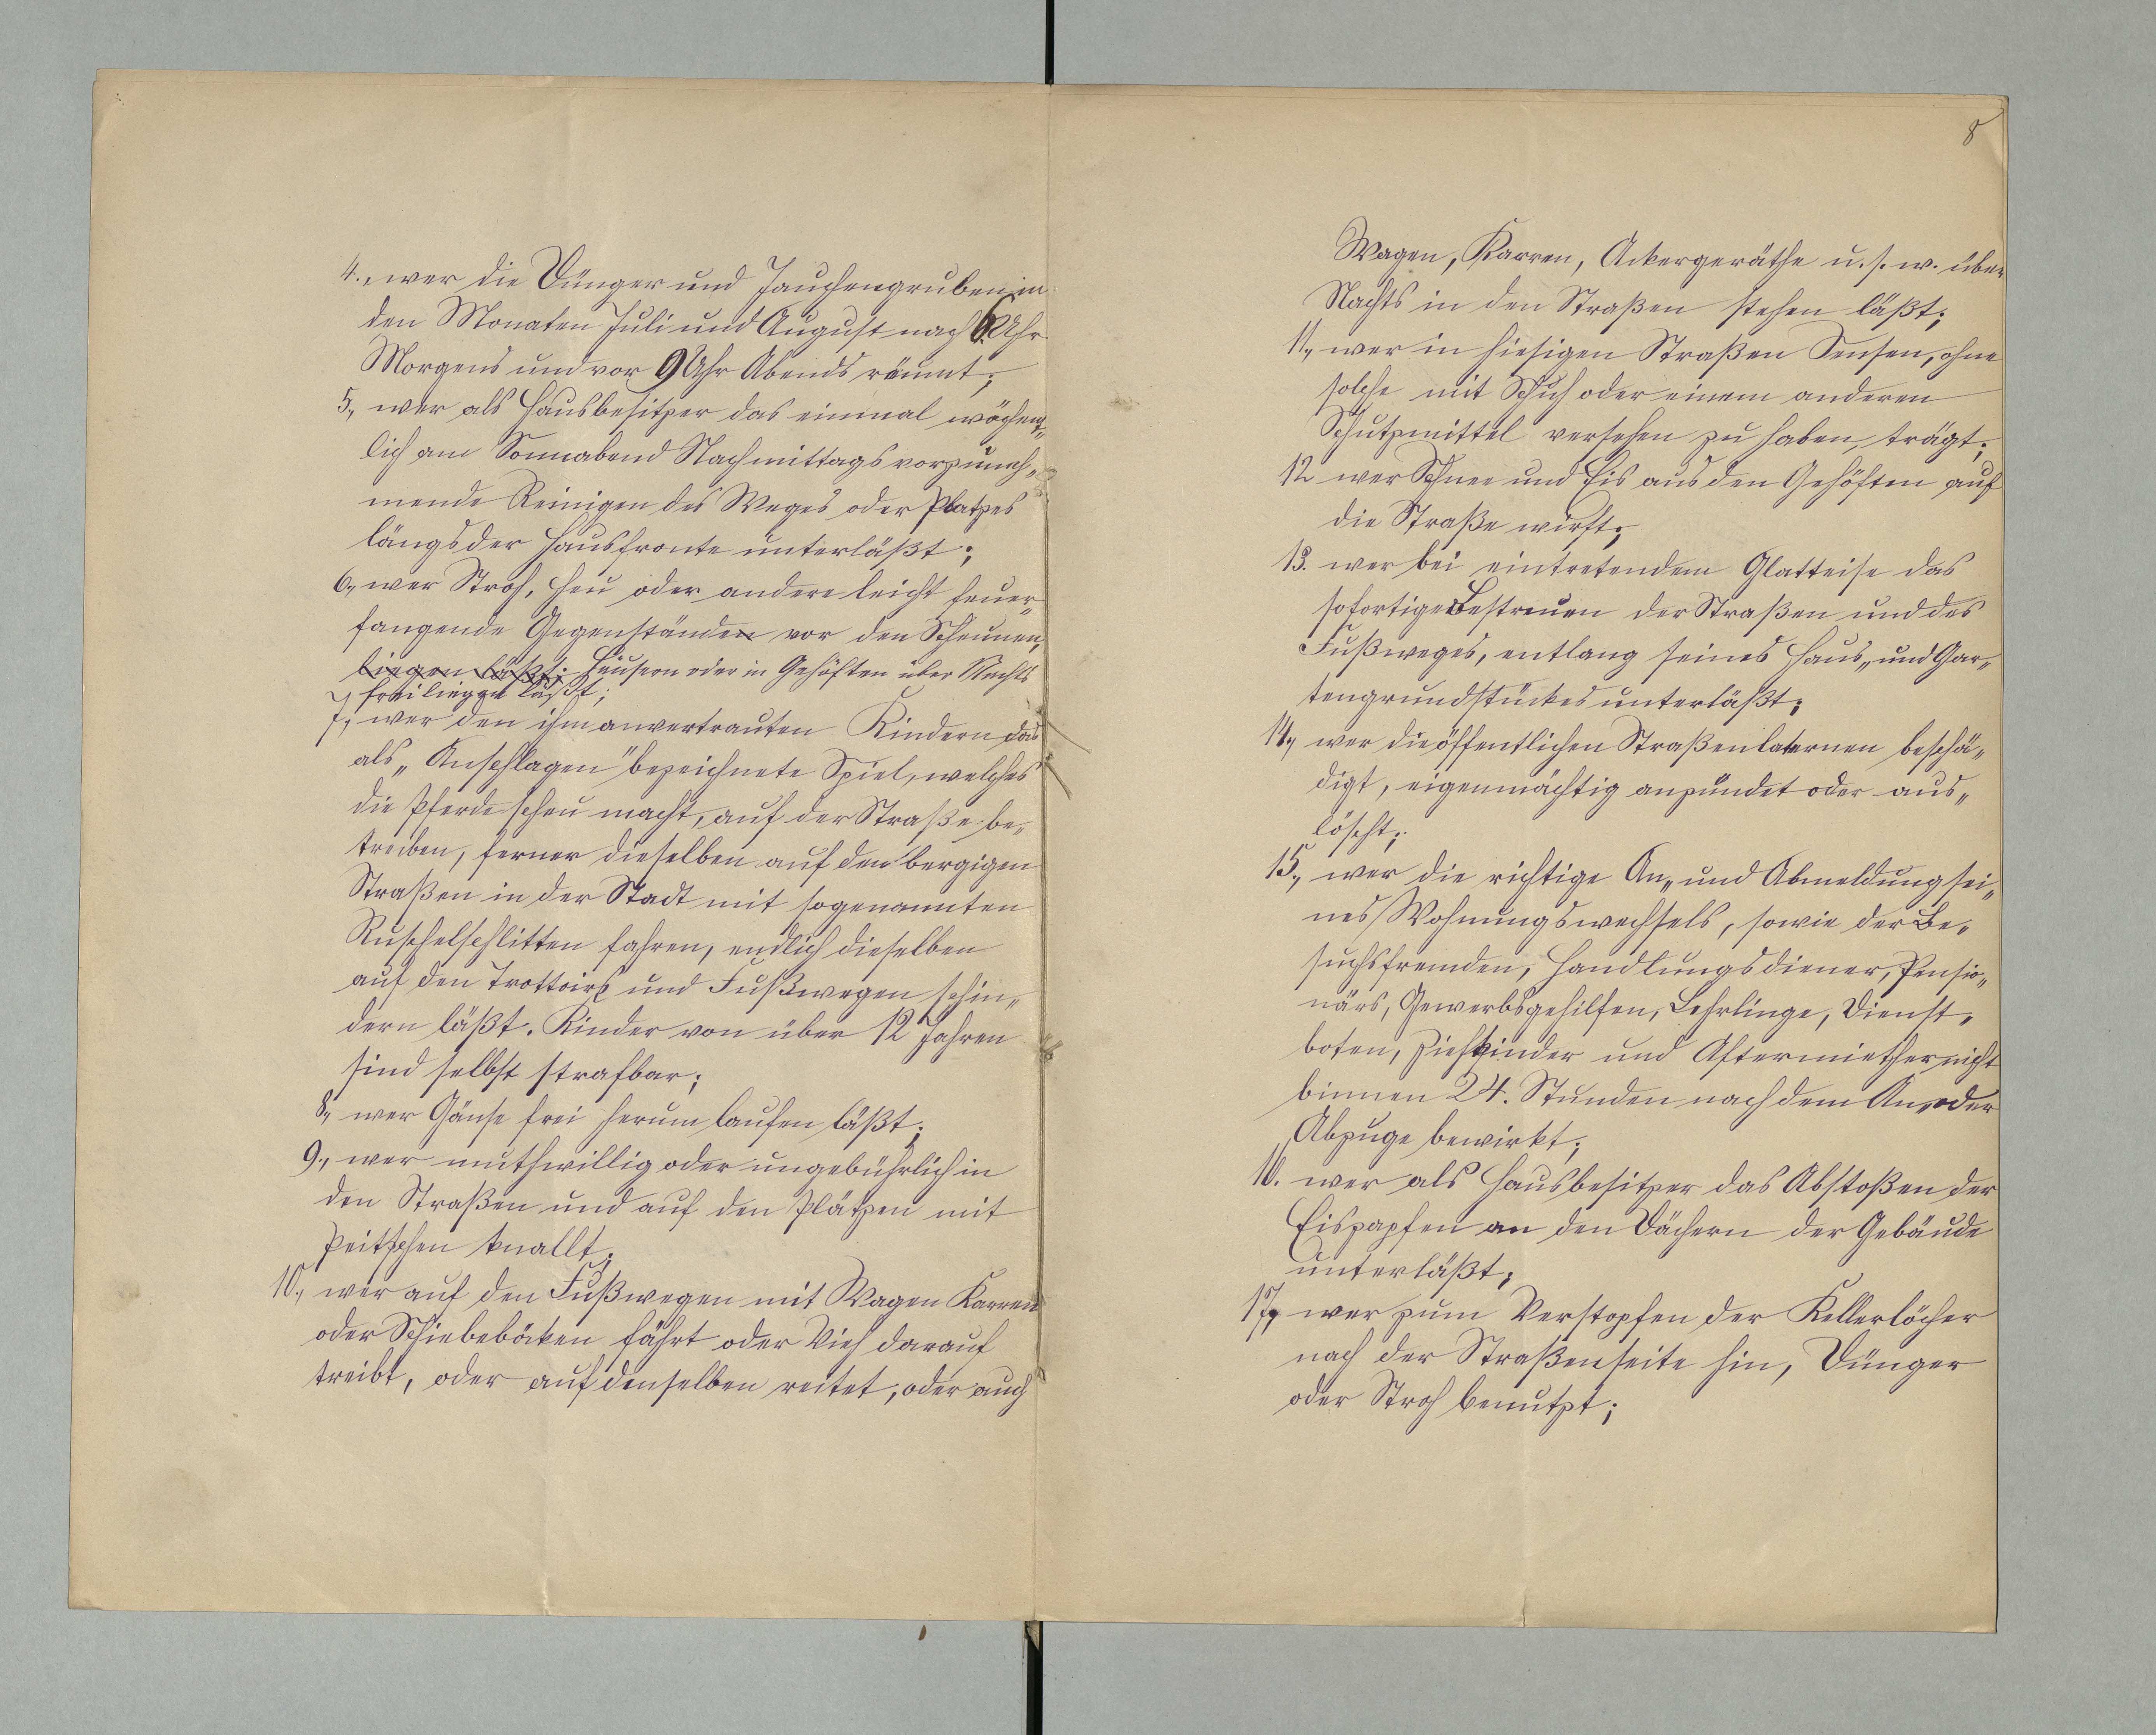 4., wer die Dünger und Jauchengruben in
den Monaten Juli und August nach 6 Uhr
Morgens und vor 9 Uhr Abends räumt;
5., wer als Hausbesitzer das einmal wöchent„
lich am Sonnabend Nachmittags vorzuneh„
mende Reinigen des Weges oder Platzes
längs der Hausfronte unterläßt;
6., wer Stroh, Heu oder andere leicht feuer„
fangende Gegenstände vor den Scheunen,
liegen läßt; Häusern oder in Gehöften über Nachts
frei liegen läßt;
7., wer den ihm anvertrauten Kindern das
als „Anschlagen" bezeichnete Spiel, welches
die Pferde scheu macht, auf der Straße be„
treiben, ferner dieselben auf den bergigen
Straßen in der Stadt mit sogenannten
Ruschelschlitten fahren, endlich dieselben
auf den Trottoirs und Fußwegen schin„
dern läßt. Kinder von über 12 Jahren
sind selbst strafbar;
8., wer Gänse frei herum laufen läßt;
9., wer muthwillig oder ungebührlich in
den Straßen und auf den Plätzen mit
Peitschen knallt;
10., wer auf den Fußwegen mit Wagen Karren
oder Schiebeböcken fährt oder Vieh darauf
treibt, oder auf denselben reitet, oder auch
8
Wagen, Karren, Ackergeräthe u. s. w. über
Nachts in den Straßen stehen läßt;
11., wer in hiesigen Straßen Sensen, ohne
solche mit Schuh oder einem anderen
Schutzmittel versehen zu haben, trägt;
12 wer Schnee und Eis aus den Gehöften auf
die Straße wirft;
13. wer bei eintretendem Glatteise das
sofortige Bestreuen der Straßen und des
Fußweges, entlang seines Haus„ und Gar„
tengrundstückes unterläßt;
14., wer die öffentlichen Straßenlaternen beschä„
digt, eigenmächtig anzündet oder aus„
löscht;
15., wer die richtige An„ und Abmeldung sei„
nes Wohnungswechsels, sowie der Be„
suchsfremden, Handlungsdiener, Pensio„
närs, Gewerbsgehilfen, Lehrlinge, Dienst„
boten, Ziehkinder und Aftermiether nicht
binnen 24. Stunden nach dem An„ oder
Abzuge bewirkt;
16. wer als Hausbesitzer das Abstoßen der
Eiszapfen an den Dächern der Gebäude
unterläßt;
17., wer zum Verstopfen der Kellerlöcher
nach der Straßenseite hin, Dünger
oder Stroh benutzt;